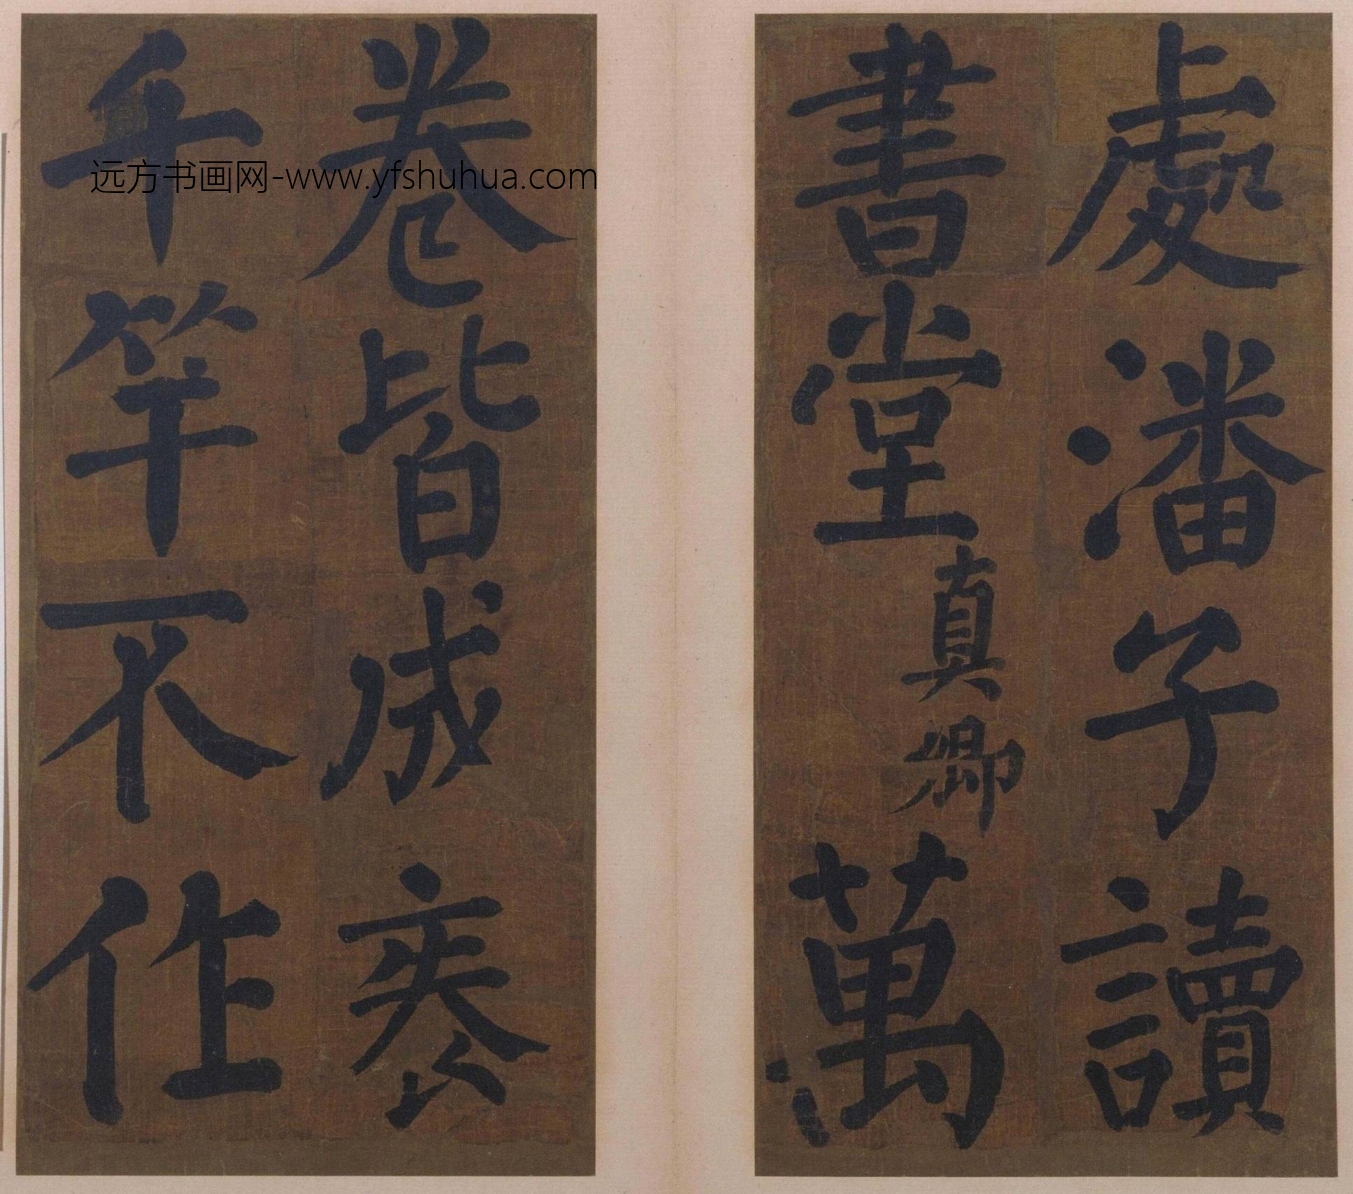 處潘子讀
書堂真卿萬
卷皆成
千竿不作
远方书画网-www.yfshuhua.com